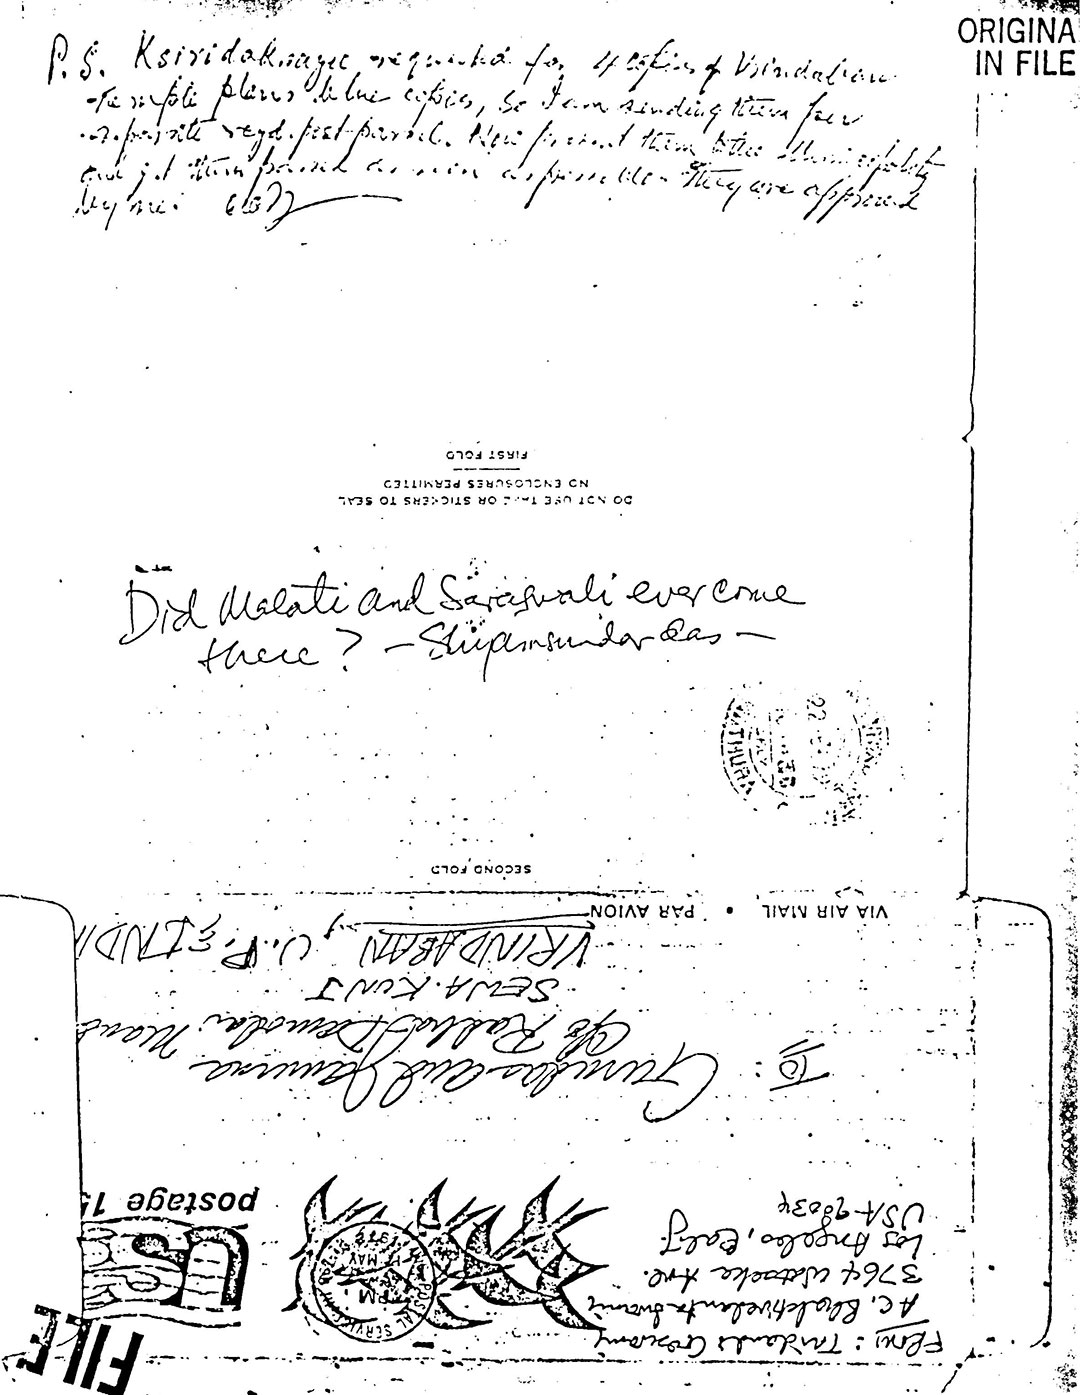 ORIGINA
IN FILE
P.S. Ksirodaksayee requested for 4 copies of Vrindaban
Temple plans blue copies, so I am sending them per
separate regd. post parcel. Now present them to the Municipality
and get them passed as soon as possible. They are approved
by me.
FIRST FOLD
NO ENCLOSURES PERMITTED
DO NOT USE TAPE OR STICKERS TO SEAL
Did Malati and Saraswati ever come
there? - Shyamsundar das -
MATHURA
SECOND FOLD
VIA AIR MAIL • PAR AVION
To: Gurudas and Jamuna
c/o Radha Damodar Mand
SEWA-KUNJ
VRINDABAN, U.P. INDI
From: Tridandi Goswami
A.C. Bhaktivedanta Swami
3764 Watseka Ave.
Los Angeles, Calif
USA-90034
US
postage 15
POSTAL SERVICE
PM
MAY
1972
FILE